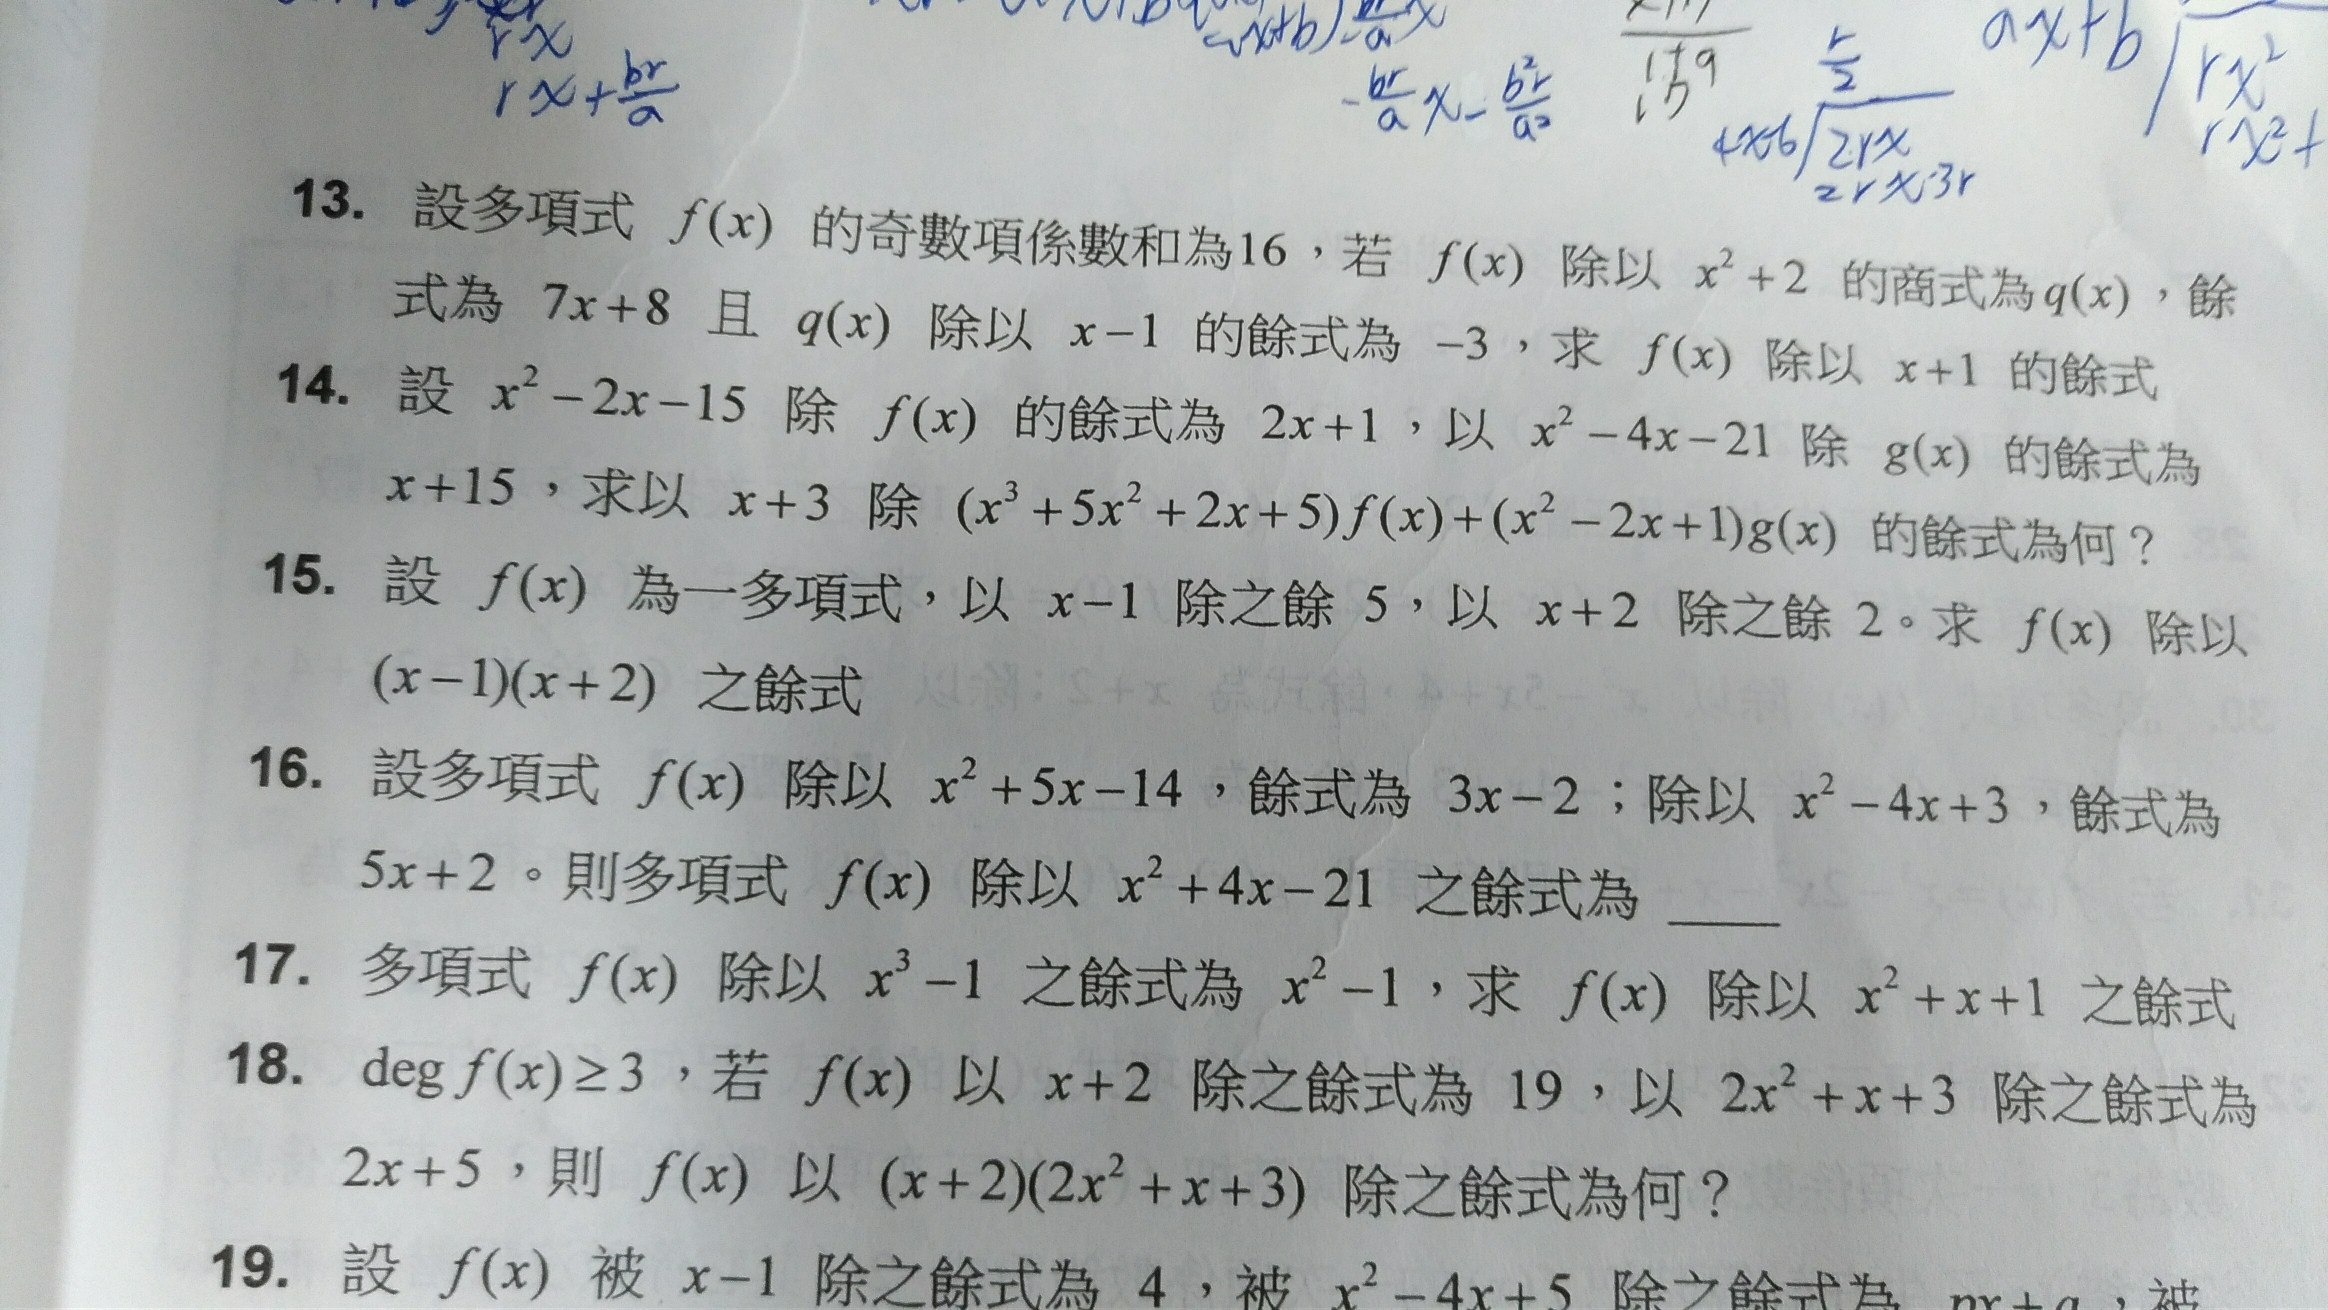 rx
rx+br/a
-br/a x - b²r/a²
r/2
4x-6
2rx
2rx-3r
ax+b
rx²
rx²+
13. 設多項式 f(x) 的奇數項係數和為16,若 f(x) 除以 x²+2 的商式為q(x),餘
式為 7x+8 且 q(x) 除以 x-1 的餘式為 -3,求 f(x) 除以 x+1 的餘式
14. 設 x²-2x-15 除 f(x) 的餘式為 2x+1,以 x²-4x-21 除 g(x) 的餘式為
x+15,求以 x+3 除 (x³+5x²+2x+5)f(x)+(x²-2x+1)g(x) 的餘式為何?
15. 設 f(x) 為一多項式,以 x-1 除之餘 5,以 x+2 除之餘 2。求 f(x) 除以
(x-1)(x+2) 之餘式
16. 設多項式 f(x) 除以 x²+5x-14,餘式為 3x-2;除以 x²-4x+3,餘式為
5x+2。則多項式 f(x) 除以 x²+4x-21 之餘式為 ____
17. 多項式 f(x) 除以 x³-1 之餘式為 x²-1,求 f(x) 除以 x²+x+1 之餘式
18. deg f(x)≥3,若 f(x) 以 x+2 除之餘式為 19,以 2x²+x+3 除之餘式為
2x+5,則 f(x) 以 (x+2)(2x²+x+3) 除之餘式為何?
19. 設 f(x) 被 x-1 除之餘式為 4,被 x²-4x+5 除之餘式為 px+q,被